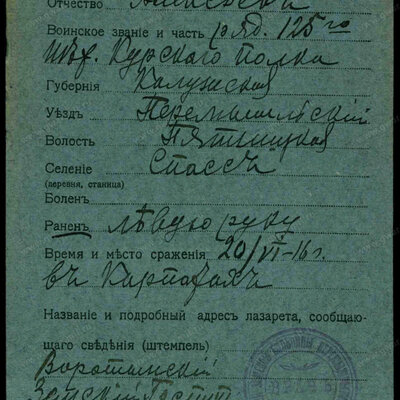 Отчество Алексѣевъ
Воинское званіе и часть ряд. 125го
пѣх. Курскаго полка
Губернія Калужская
Уѣздъ Перемышльскій
Волость Пятницкая
Селеніе Спассъ
(деревня, станица)
Боленъ
Раненъ лѣвую руку
Время и мѣсто сраженія 20/VI-16 г.
въ Карпатахъ
Названіе и подробный адресъ лазарета, сообщаю-
щаго свѣдѣнія (штемпель)
Воротынскій
Земскій Госпит